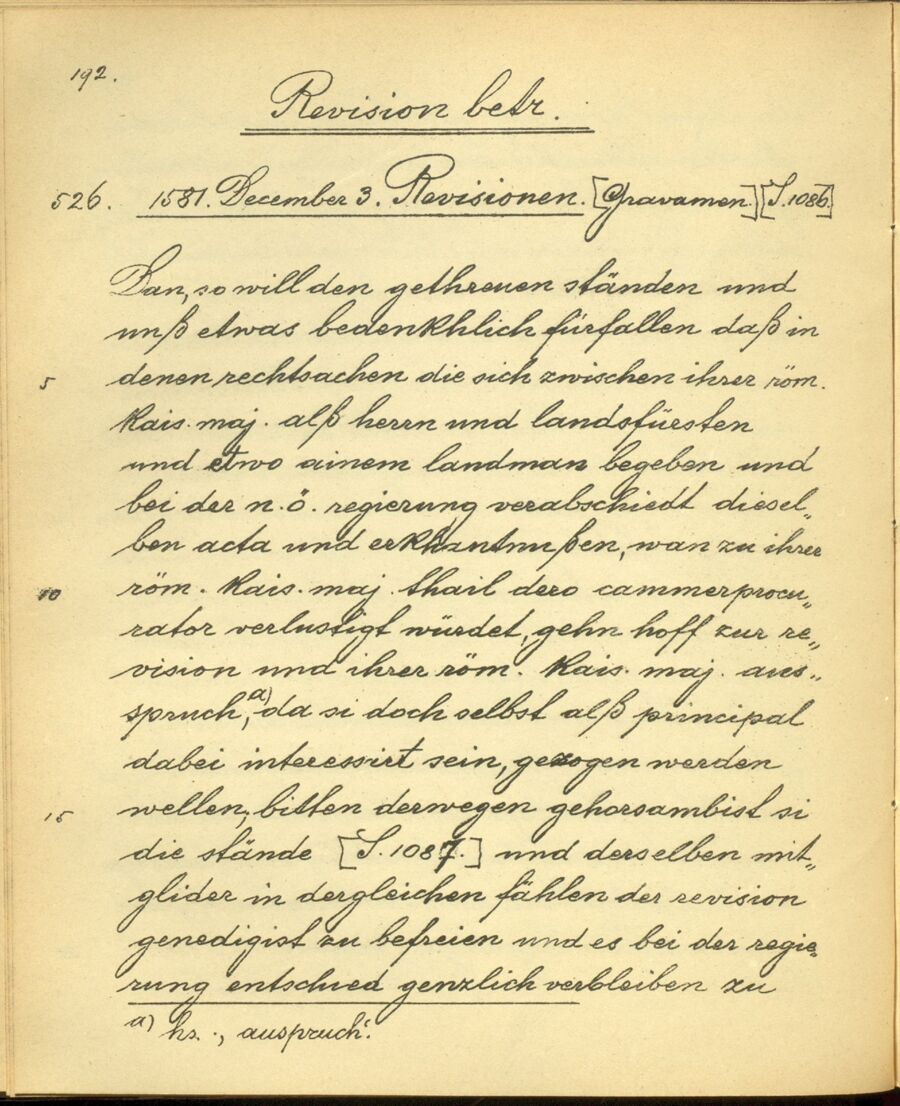 192.
Revision betr.
526. 1581. December 3. Revisionen. [Gravamen.] [S. 1086.]
Dan, so will den gethreuen ständen und
unß etwas bedenkhlich fürfallen daß in
5 denen rechtsachen die sich zwischen ihrer röm.
kais. maj. alß herrn und landsfürsten
und etwo ainem landman begeben und
bei der n. ö. regierung verabschiedt diesel„
ben acta und erkhantnußen, wan zu ihrer
10 röm. kais. maj. thail dero cammerprocu„
rator verlustigt würdet, gehn hoff zur re„
vision und ihrer röm. kais. maj. aus„
spruch,a) da si doch selbst alß principal
dabei interessirt sein, gezogen werden
15 wellen; bitten derwegen gehorsambist si
die stände [S. 1087.] und derselben mit„
glider in dergleichen fählen der revision
genedigist zu befreien und es bei der regie„
rung entschied genzlich verbleiben zu
a) hs. „auspruch“.